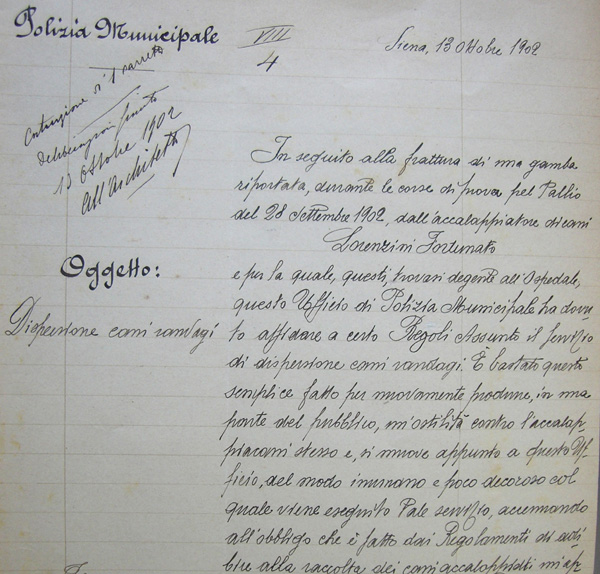 Polizia Municipale
VIII
4
Siena, 13 Ottobre 1902
Costruzione di 1 carretto
13 Ottobre 1902
All'Architetto
In seguito alla frattura di una gamba
riportata, durante le corse di prova pel Pallio
del 28 Settembre 1902, dall'accalappiatore di cani
Lorenzini Fortunato
e per la quale, questi, trovasi degente all'Ospedale,
questo Ufficio di Polizia Municipale ha dovu
to affidare a certo Regoli Assunto il servizio
di dispersione cani randagi. È bastato questo
semplice fatto per nuovamente produrre, in una
parte del pubblico, un'ostilità contro l'accalap
piacani stesso e, si muove appunto a questo Uf
ficio, del modo inumano e poco decoroso col
quale viene eseguito tale servizio, accennando
all'obbligo che è fatto dai Regolamenti di adi
bire alla raccolta dei cani accalappiati un'ap
Oggetto:
Dispersione cani randagi